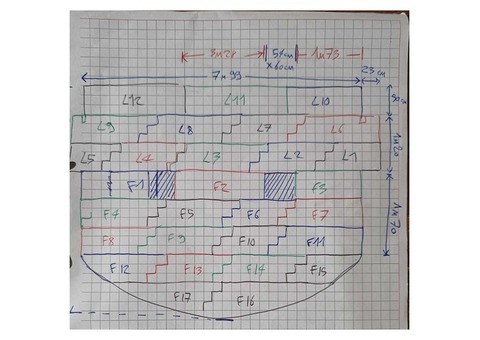 3m28 51cm 1m73
x60cm
7m99 23cm
L12 L11 L10
L9 L8 L7 L6
1m20
L5 L4 L3 L2 L1
F1 F2 F3
F4 F5 F6 F7
1m70
F8 F9 F10 F11
F12 F13 F14 F15
F17 F16